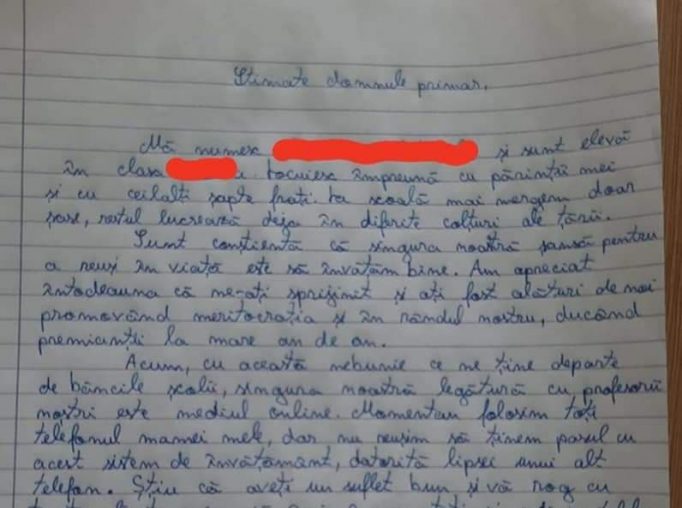 Stimate domnule primar,
Mă numesc și sunt elevă
în clasa Locuiesc împreună cu părinții mei
și cu ceilalți șapte frați. La școală mai mergem doar
șase, restul lucrează deja în diferite colțuri ale țării.
Sunt conștientă că singura noastră șansă pentru
a reuși în viață este să învățăm bine. Am apreciat
întodeauna că ne-ați sprijinit și ați fost alături de noi
promovând meritocrația și în rândul nostru, ducând
premianții la mare an de an.
Acum, cu această nebunie ce ne ține departe
de băncile școlii, singura noastră legătură cu profesorii
noștri este mediul online. Momentan folosim toți
telefonul mamei mele, dar nu reușim să ținem pasul cu
acest sistem de învățământ, datorită lipsei unui alt
telefon. Știu că aveți un suflet bun și vă rog cu